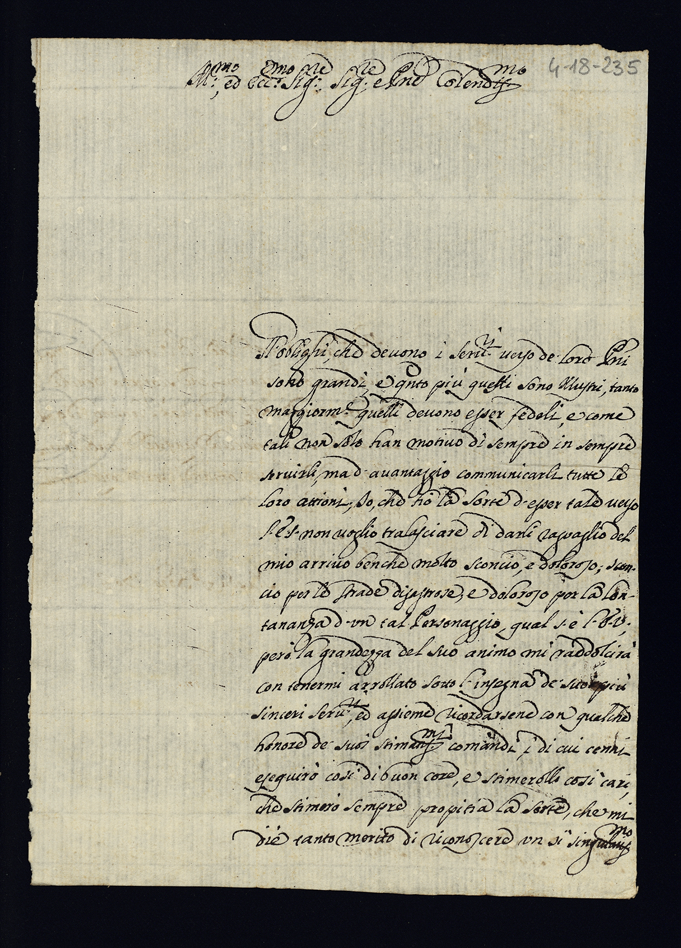 4-18-235
Ill:mo, ed Ecc:mo Sig:re Sig:re e Pne Colendis:mo
Gl'oblighi, che devono i Serv:ri verso de loro Pni
sono grandi, e qnto più questi sono Illustri, tanto
maggiorm:te quelli devono esser fedeli, e come
tali non solo han motivo di sempre in sempre
servirli, ma d'avantaggio communicarli tutte le
loro attioni, Io, che hò la sorte d'esser tale verso
non voglio tralasciare di darli raguaglio del
mio arrivo benche molto sconcio, e doloroso, scon-
cio per le strade disastrose, e doloroso per la lon-
tananza d'un tal Personaggio, qual s'è l'
però la grandezza del suo animo mi raddolcirà
con tenermi arrollato sotto l'insegna de suoi più
sinceri Serv:ri, ed assieme ricordarsene con qualche
honore de suoi stimatis:mi comandi, i di cui cenni
eseguirò così di buon core, e stimerolli così cari,
che stimerò sempre propitia la sorte, che mi
diè tanto merito di riconoscere un sì singularis:mo